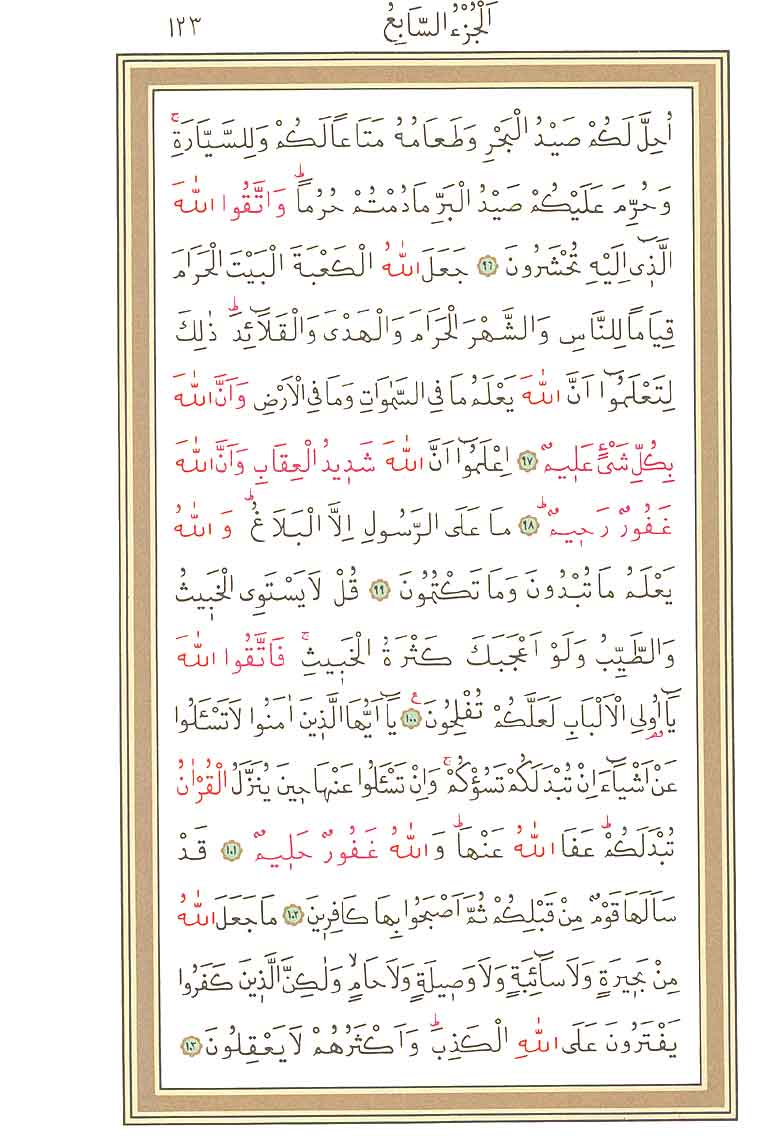 اَلْجُزْءُ السَّابِعُ
١٢٣
اُحِلَّ لَكُمْ صَيْدُ الْبَحْرِ وَطَعَامُهُ مَتَاعًا لَكُمْ وَلِلسَّيَّارَةِۚ
وَحُرِّمَ عَلَيْكُمْ صَيْدُ الْبَرِّ مَا دُمْتُمْ حُرُمًاۜ وَاتَّقُوا اللّٰهَ
الَّذ۪ٓي اِلَيْهِ تُحْشَرُونَ ﴿٩٦﴾ جَعَلَ اللّٰهُ الْكَعْبَةَ الْبَيْتَ الْحَرَامَ
قِيَامًا لِلنَّاسِ وَالشَّهْرَ الْحَرَامَ وَالْهَدْيَ وَالْقَلَٓائِدَۜ ذٰلِكَ
لِتَعْلَمُٓوا اَنَّ اللّٰهَ يَعْلَمُ مَا فِي السَّمٰوَاتِ وَمَا فِي الْاَرْضِ وَاَنَّ اللّٰهَ
بِكُلِّ شَيْءٍ عَل۪يمٌ ﴿٩٧﴾ اِعْلَمُٓوا اَنَّ اللّٰهَ شَد۪يدُ الْعِقَابِ وَاَنَّ اللّٰهَ
غَفُورٌ رَح۪يمٌۜ ﴿٩٨﴾ مَا عَلَى الرَّسُولِ اِلَّا الْبَلَاغُۜ وَاللّٰهُ
يَعْلَمُ مَا تُبْدُونَ وَمَا تَكْتُمُونَ ﴿٩٩﴾ قُلْ لَا يَسْتَوِي الْخَب۪يثُ
وَالطَّيِّبُ وَلَوْ اَعْجَبَكَ كَثْرَةُ الْخَب۪يثِۚ فَاتَّقُوا اللّٰهَ
يَٓا اُو۬لِي الْاَلْبَابِ لَعَلَّكُمْ تُفْلِحُونَ۟ ﴿١٠٠﴾ يَٓا اَيُّهَا الَّذ۪ينَ اٰمَنُوا لَا تَسْـَٔلُوا
عَنْ اَشْيَٓاءَ اِنْ تُبْدَ لَكُمْ تَسُؤْكُمْۚ وَاِنْ تَسْـَٔلُوا عَنْهَا ح۪ينَ يُنَزَّلُ الْقُرْاٰنُ
تُبْدَ لَكُمْۜ عَفَا اللّٰهُ عَنْهَاۜ وَاللّٰهُ غَفُورٌ حَل۪يمٌ ﴿١٠١﴾ قَدْ
سَاَلَهَا قَوْمٌ مِنْ قَبْلِكُمْ ثُمَّ اَصْبَحُوا بِهَا كَافِر۪ينَ ﴿١٠٢﴾ مَا جَعَلَ اللّٰهُ
مِنْ بَح۪يرَةٍ وَلَا سَٓائِبَةٍ وَلَا وَص۪يلَةٍ وَلَا حَامٍۙ وَلٰكِنَّ الَّذ۪ينَ كَفَرُوا
يَفْتَرُونَ عَلَى اللّٰهِ الْكَذِبَۜ وَاَكْثَرُهُمْ لَا يَعْقِلُونَ ﴿١٠٣﴾